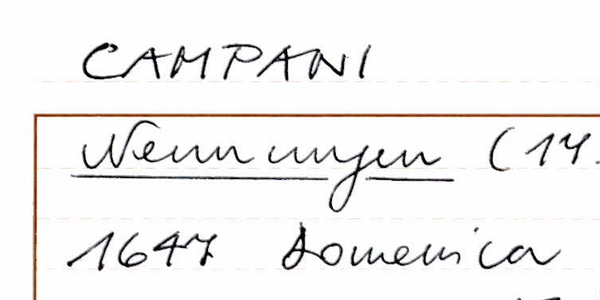 CAMPANI
Nennungen (14.
1647 Domenica